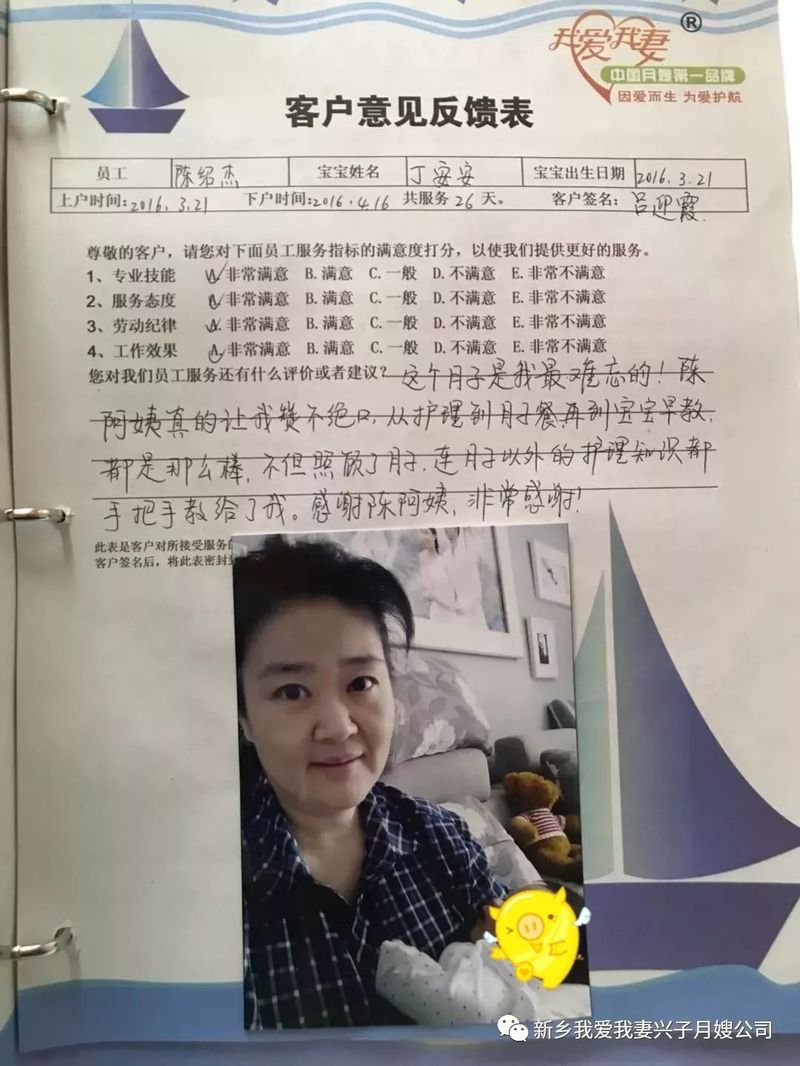 我爱我妻®
中国月嫂第一品牌
因爱而生 为爱护航
客户意见反馈表
员工 陈绍杰 宝宝姓名 丁安安 宝宝出生日期 2016.3.21
上户时间:2016.3.21 下户时间:2016.4.16 共服务26天。 客户签名: 吕迎霞.
尊敬的客户，请您对下面员工服务指标的满意度打分，以使我们提供更好的服务。
1、专业技能 A.非常满意 B.满意 C.一般 D.不满意 E.非常不满意
2、服务态度 A.非常满意 B.满意 C.一般 D.不满意 E.非常不满意
3、劳动纪律 A.非常满意 B.满意 C.一般 D.不满意 E.非常不满意
4、工作效果 A.非常满意 B.满意 C.一般 D.不满意 E.非常不满意
您对我们员工服务还有什么评价或者建议？ 这个月子是我最难忘的！陈
阿姨真的让我赞不绝口，从护理到月子餐再到宝宝早教，
都是那么棒，不但照顾了月子，连月子以外的护理知识都
手把手教给了我。感谢陈阿姨，非常感谢！
此表是客户对所接受服务的
客户签名后，将此表密封
新乡我爱我妻兴子月嫂公司